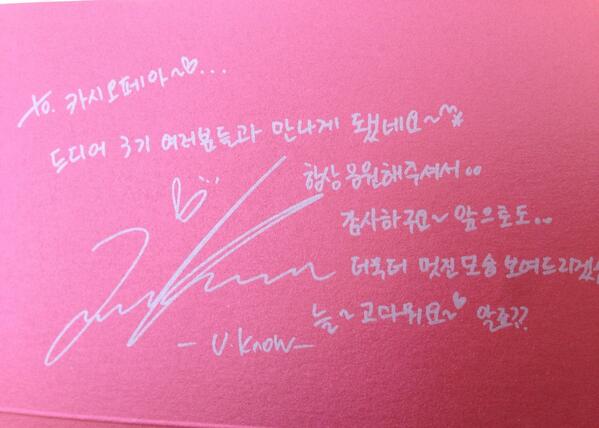 to. 카시오페아~♡...
드디어 3기 여러분들과 만나게 됐네요~
항상 응원해주셔서..
감사하구요~ 앞으로도..
더욱더 멋진모습 보여드리겠
늘~ 고마워요~♡ 알죠??
- U.Know -